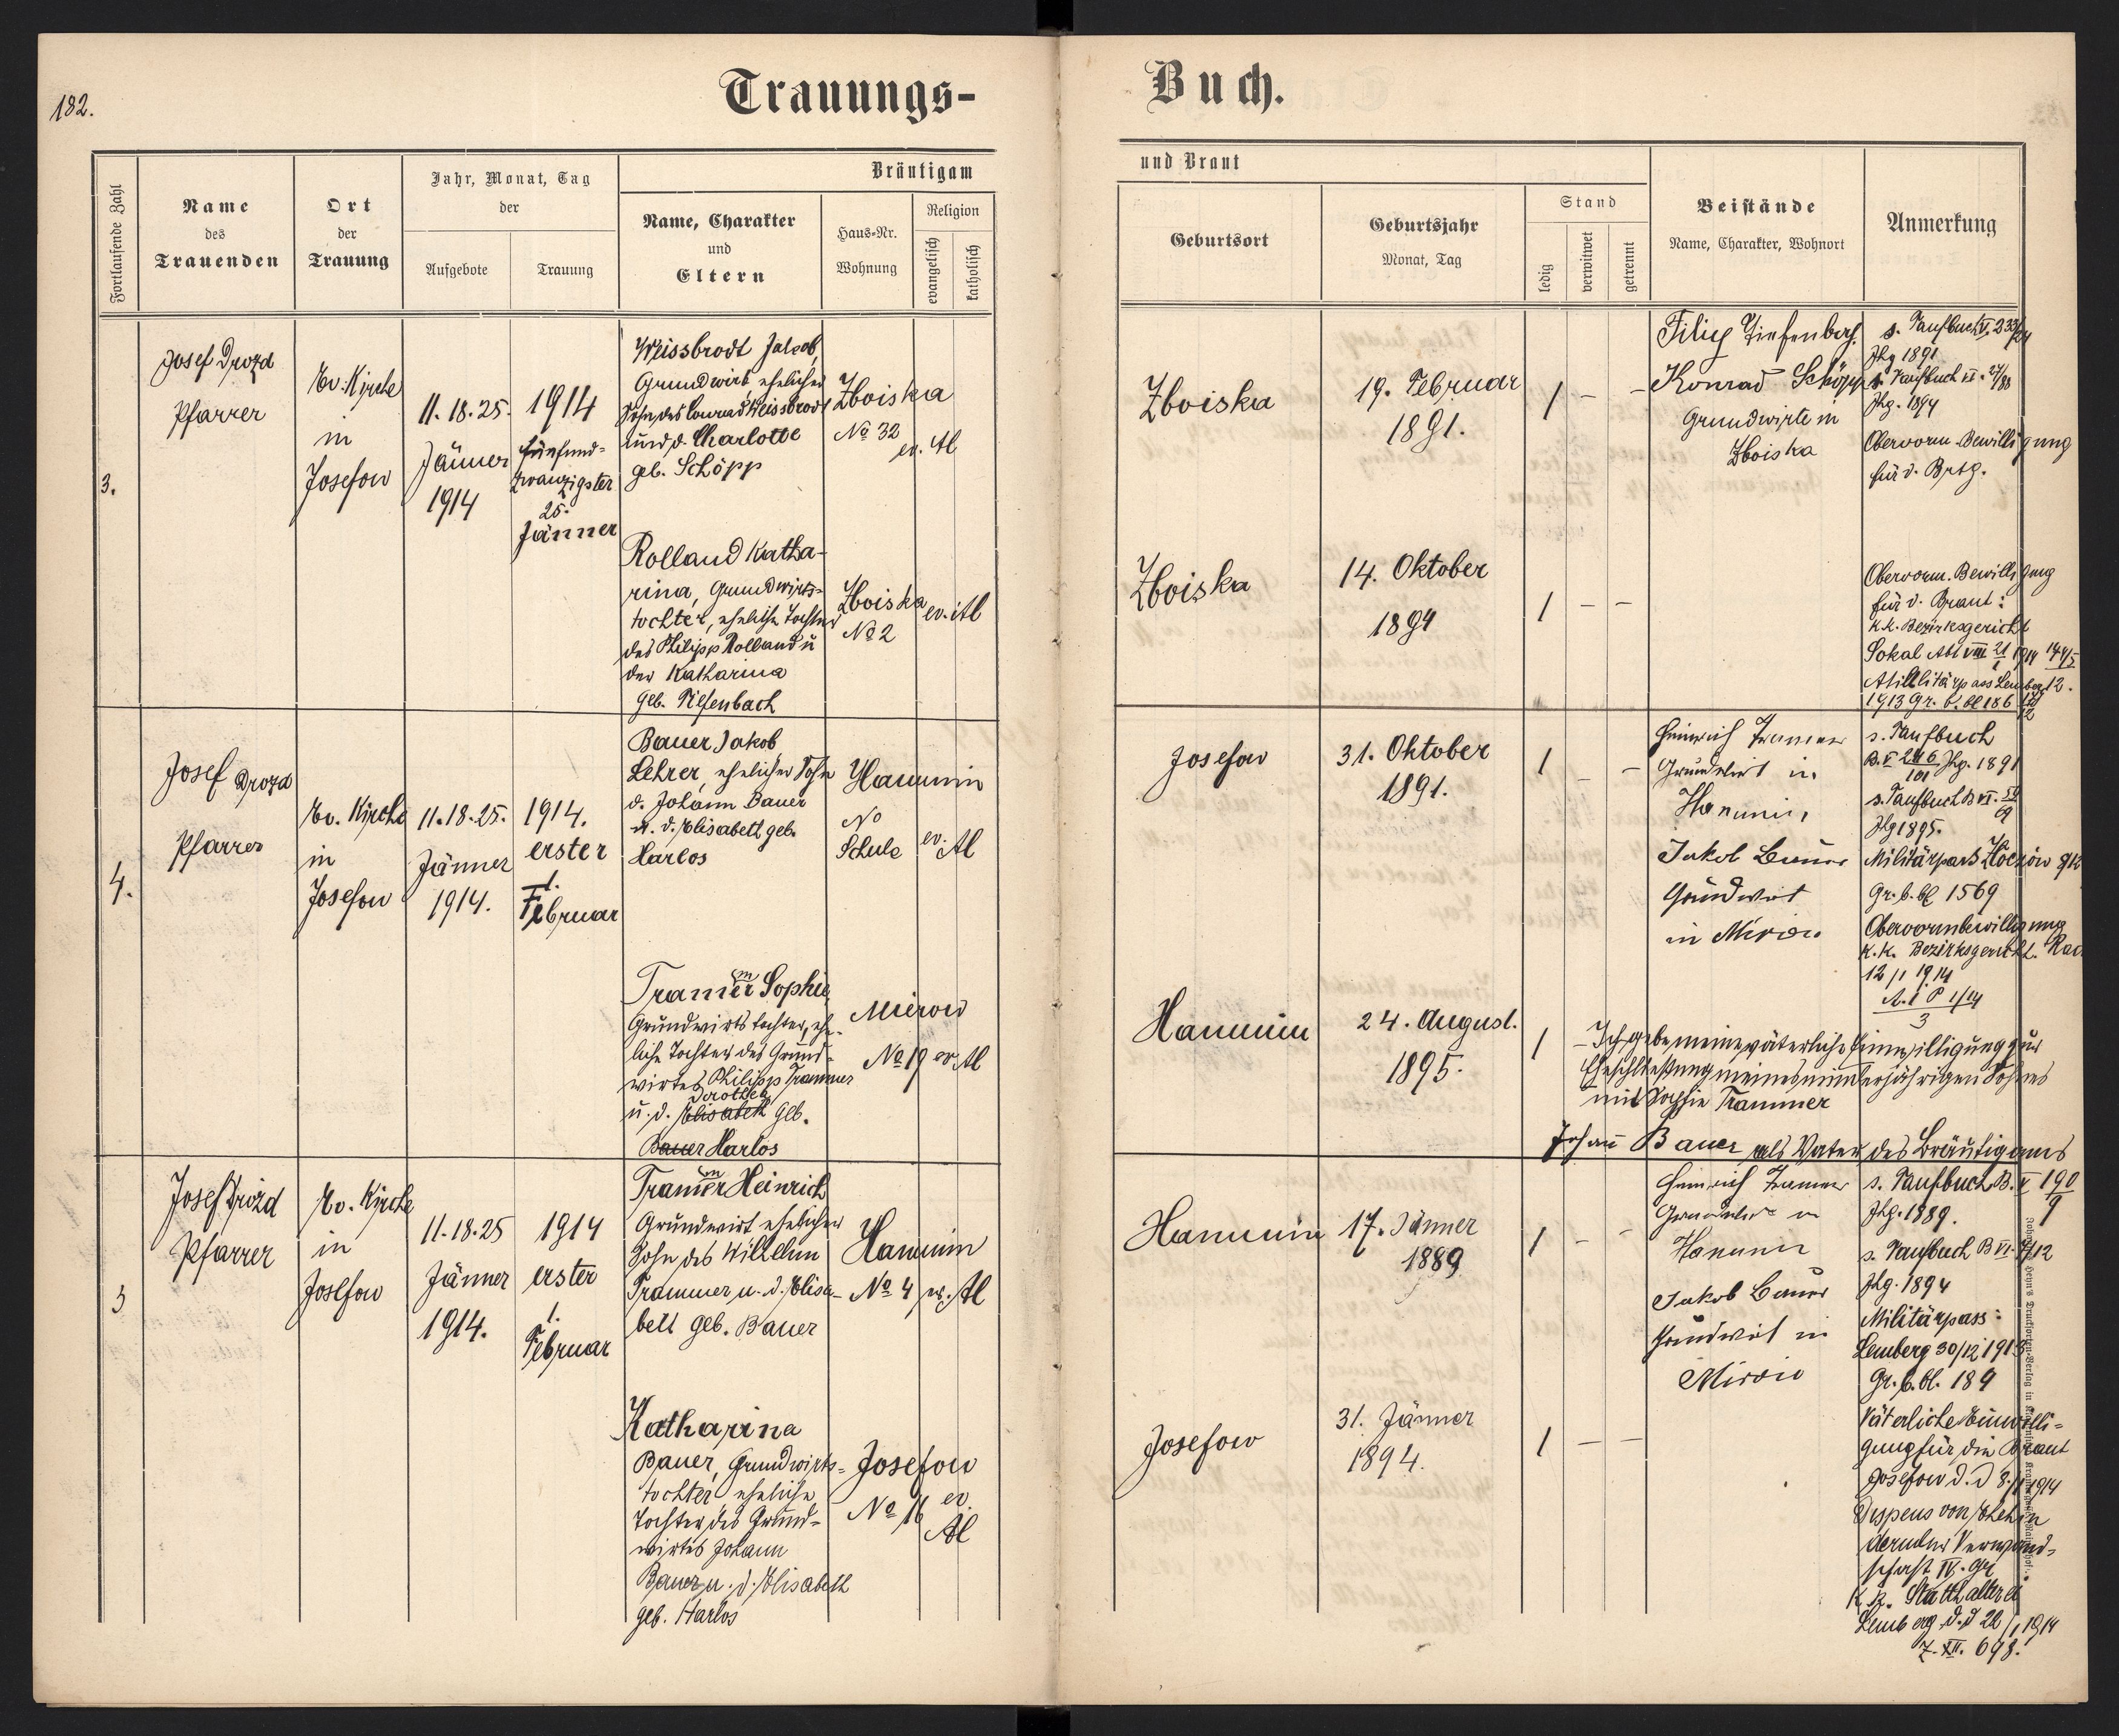 182.
Trauungs-
Buch.
Fortlaufende Zahl
Name
des
Trauenden
Ort
der
Trauung
Jahr, Monat, Tag
der
Aufgebote
Trauung
Bräutigam
Name, Charakter
und
Eltern
Haus-Nr.
Wohnung
Religion
evangelisch
katholisch
und Braut
Geburtsort
Geburtsjahr
Monat, Tag
Stand
ledig
verwitwet
getrennt
Beistände
Name, Charakter, Wohnort
Anmerkung
3.
Josef Drozd
Pfarrer
Ev. Kirche
in
Josefow
11. 18. 25.
Jänner
1914
1914
fünfund-
zwanzigster
25.
Jänner
Weissbrodt Jakob,
Grundwirt, ehelicher
Sohn des Conrad Weissbrodt
und d. Charlotte
geb. Schöpp
Zboiska
No 32
ev. Al
Zboiska
19. Februar
1891.
1 – –
Filip Tiefenbach
Konrad Schöpp
Grundwirte in
Zboiska
s. Taufbuch V. 233/24
Jhg 1891
s. Taufbuch VI. 27/88
Jhg. 1894
Obervorm. Bewilligung
für d. Brtg.
Rolland Katha-
rina, Grundwirts-
tochter, eheliche Tochter
des Philipp Rolland u
der Katharina
geb. Tiefenbach
Zboiska
No 2
ev. Al
Zboiska
14. Oktober
1894
1 – –
Obervorm. Bewilligung
für d. Braut:
k.k. Bezirksgericht
Sokal Abt VIII 21/1 1914
Militärpass Lemberg 12.
1913 Gr. b. bl 186
4.
Josef Drozd
Pfarrer
Ev. Kirche
in
Josefow
11. 18. 25.
Jänner
1914.
1914.
erster
1.
Februar
Bauer Jakob
Lehrer, ehelicher Sohn
d. Johann Bauer
u. d. Elisabeth geb.
Harlos
Hanunin
No
Schule
ev. Al
Josefow
31. Oktober
1891.
1 – –
Heinrich Trammer
Grundwirt in
Hanunin,
Jakob Bauer
Grundwirt
in Mirow
s. Taufbuch
B. V 246/101 Jhg. 1891
s. Taufbuch B VI.
Jhg 1895.
Militärpass Złoczów
Gr. b. bl 1569
Obervormbewilligung
k.k. Bezirksgericht.
12/1 1914
Tramer Sophie
Grundwirtstochter, ehe-
liche Tochter des Grund-
wirtes Philipp Trammer
Dorothea
u. d. Elisabeth geb.
Bauer Harlos
Mierow
No 19
ev. Al
Hanunin
24. August.
1895.
1
– Ich gebe meine väterliche Einwilligung zur
Eheschließung meines minderjährigen Sohnes
mit Sophie Trammer
Johann Bauer als Vater des Bräutigams
5
Josef Drozd
Pfarrer
Ev. Kirche
in
Josefow
11. 18. 25
Jänner
1914.
1914
erster
1.
Februar
Tramer Heinrich
Grundwirt ehelicher
Sohn des Wilhelm
Trammer u. d. Elisa-
beth geb. Bauer
Hanunin
No 4
ev. Al
Hanunin
17. Jänner
1889
1 – –
Heinrich Trammer
Grundwirt in
Hanunin
Jakob Bauer
Grundwirt in
Mirow
s. Taufbuch B. V 190/9
Jhg. 1889.
s. Taufbuch B VI. 4/12
Jhg. 1894
Militärpass:
Lemberg 30/12 1913
Gr. b. bl. 189
Katharina
Bauer, Grundwirts-
tochter eheliche
Tochter des Grund-
wirtes Johann
Bauer u. d. Elisabeth
geb. Harlos
Josefow
No 16
ev.
Al
Josefow
31. Jänner
1894.
1 – –
Väterliche Einwilli-
gung für die Braut
Josefow d. d 8/1 1914
Dispens von Ehehin
dernder Verwand-
schaft IV. Gr
k. k. Statthalterei
Lemberg d. d 22/1 1914
Z. XII. 698.